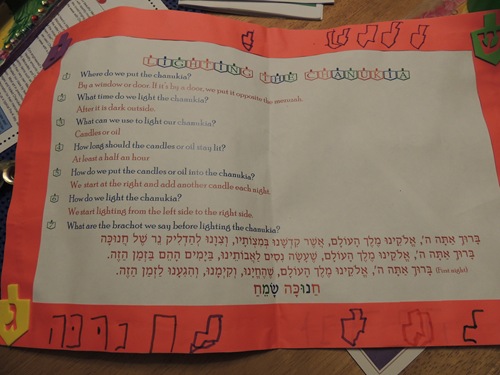 LIGHTING THE CHANUKIA
1 Where do we put the chanukia?
By a window or door. If it's by a door, we put it opposite the mezuzah.
2 What time do we light the chanukia?
After it is dark outside.
3 What can we use to light our chanukia?
Candles or oil
4 How long should the candles or oil stay lit?
At least a half an hour
5 How do we put the candles or oil into the chanukia?
We start at the right and add another candle each night.
6 How do we light the chanukia?
We start lighting from the left side to the right side.
7 What are the brachot we say before lighting the chanukia?
בָּרוּךְ אַתָּה ה', אֱלֹקֵינוּ מֶלֶךְ הָעוֹלָם, אֲשֶׁר קִדְּשָׁנוּ בְּמִצְוֹתָיו, וְצִוָּנוּ לְהַדְלִיק נֵר שֶׁל חֲנוּכָּה
בָּרוּךְ אַתָּה ה', אֱלֹקֵינוּ מֶלֶךְ הָעוֹלָם, שֶׁעָשָׂה נִסִּים לַאֲבוֹתֵינוּ, בַּיָּמִים הָהֵם בַּזְּמַן הַזֶּה.
(First night) בָּרוּךְ אַתָּה ה', אֱלֹקֵינוּ מֶלֶךְ הָעוֹלָם, שֶׁהֶחֱיָנוּ, וְקִיְּמָנוּ, וְהִגִּיעָנוּ לַזְּמַן הַזֶּה.
חֲנוּכָּה שָׂמֵחַ